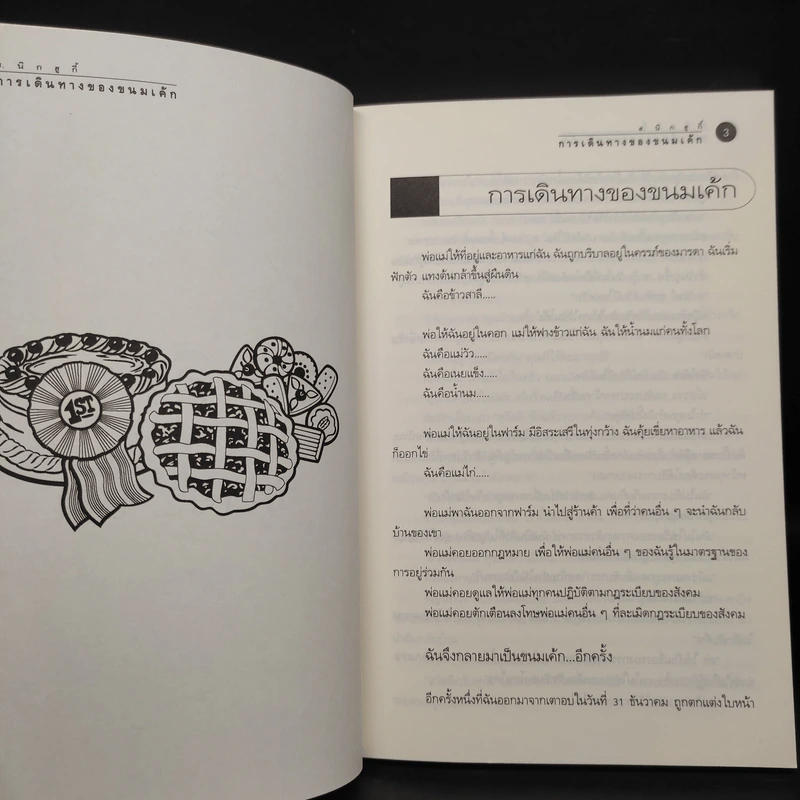 นิกฮูกี้
การเดินทางของขนมเค้ก
1ST
นิกฮูกี้
3
การเดินทางของขนมเค้ก
การเดินทางของขนมเค้ก
พ่อแม่ให้ที่อยู่และอาหารแก่ฉัน ฉันถูกบริบาลอยู่ในครรภ์ของมารดา ฉันเริ่ม
ฟักตัว แทงต้นกล้าขึ้นสู่ผืนดิน
ฉันคือข้าวสาลี.....
พ่อให้ฉันอยู่ในคอก แม่ให้ฟางข้าวแก่ฉัน ฉันให้น้ำนมแก่คนทั้งโลก
ฉันคือแม่วัว.....
ฉันคือเนยแข็ง.....
ฉันคือน้ำนม.....
พ่อแม่ให้ฉันอยู่ในฟาร์ม มีอิสระเสรีในทุ่งกว้าง ฉันคุ้ยเขี่ยหาอาหาร แล้วฉัน
ก็ออกไข่
ฉันคือแม่ไก่.....
พ่อแม่พาฉันออกจากฟาร์ม นำไปสู่ร้านค้า เพื่อที่ว่าคนอื่น ๆ จะนำฉันกลับ
บ้านของเขา
พ่อแม่คอยออกกฎหมาย เพื่อให้พ่อแม่คนอื่น ๆ ของฉันรู้ในมาตรฐานของ
การอยู่ร่วมกัน
พ่อแม่คอยดูแลให้พ่อแม่ทุกคนปฏิบัติตามกฎระเบียบของสังคม
พ่อแม่คอยตักเตือนลงโทษพ่อแม่คนอื่น ๆ ที่ละเมิดกฎระเบียบของสังคม
ฉันจึงกลายมาเป็นขนมเค้ก...อีกครั้ง
อีกครั้งหนึ่งที่ฉันออกมาจากเตาอบในวันที่ 31 ธันวาคม ถูกตกแต่งใบหน้า